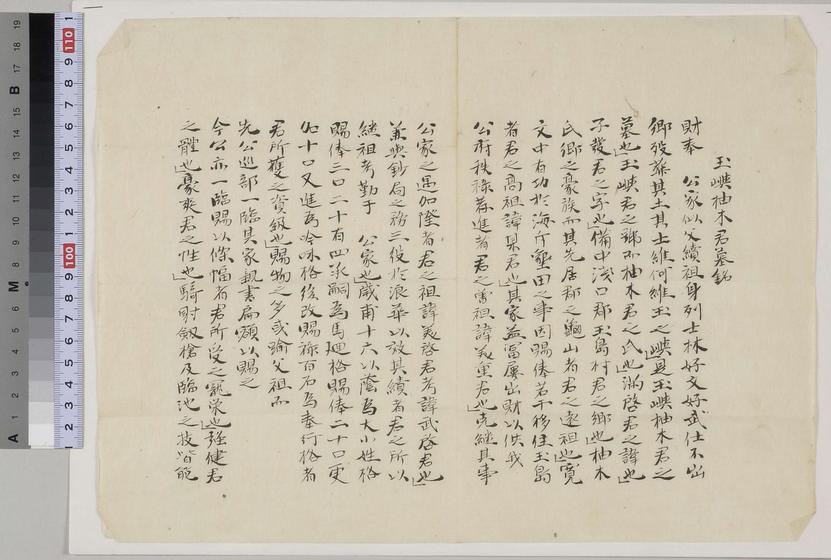 玉嶼柚木君墓銘
財奉　公家似父績祖身列士林好文好武仕不出
鄉歿葬其土其士維何維玉之嶼是玉嶼柚木君之
墓也玉嶼君之號而柚木君之氏也滿啓君之諱也
子發君之字也備中淺口郡玉島村君之鄉也柚木
氏鄉之豪族而其先居郡之龜山者君之遠祖也寬
文中有功於海斥墾田之事因賜俸若干移住玉島
者君之高祖諱某君也其家益富屢出財以供我
公府秩祿荐進者君之曾祖諱義重君也克繼其事
公家之遇加隆者君之祖諱義啓君考諱武啓君也
兼與鈔局之務三役於浪華以效其績者君之所以
繼祖考勤于　公家也歲甫十六以蔭為大小姓格
賜俸三口二十有四承嗣為馬廻格賜俸二十口更
加十口又進為吟味格後改賜祿百石為奉行格者
君所獲之資級也賜物之多或踰父祖而
先公巡部一臨其家親書扁額以賜之
今公亦一臨賜以條幅者君所受之寵榮也強健君
之體也豪爽君之性也騎射劔槍及臨池之技皆能